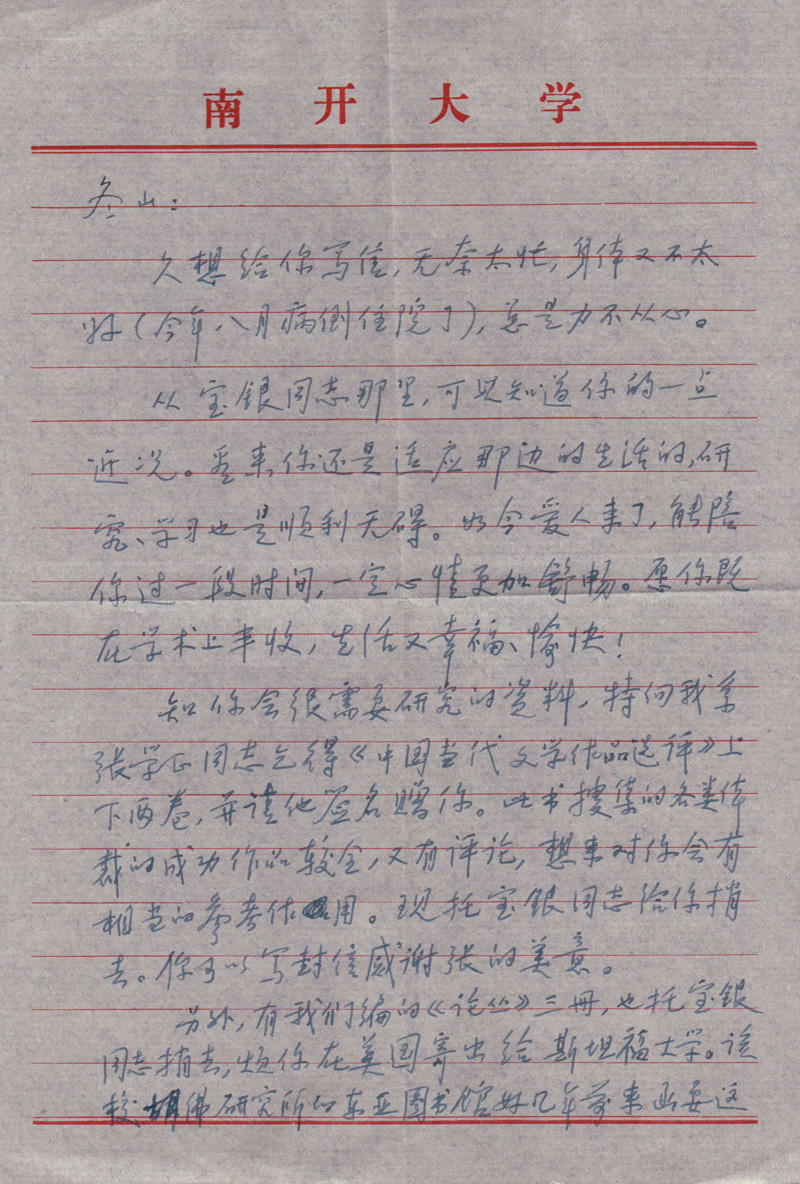 南开大学
冬山：
久想给你写信，无奈太忙，身体又不太
好（今年八月病倒住院了），总是力不从心。
从宝银同志那里，可以知道你的一点
近况。看来你还是适应那边的生活的，研
究、学习也是顺利无碍。如今爱人来了，能陪
你过一段时间，一定心情更加舒畅。愿你既
在学术上丰收，生活又幸福、愉快！
知你会很需要研究的资料，特向我系
张学正同志乞得《中国当代文学作品选评》上
下两卷，并请他签名赠你。此书搜集的各类体
裁的成功作品较全，又有评论，想来对你会有
相当的参考作用。现托宝银同志给你捎
去。你可以写封信感谢张的美意。
另外，有我们编的《论丛》三册，也托宝银
同志捎去，烦你在美国寄出给斯坦福大学。该
校胡佛研究所和东亚图书馆好几年前来函要这